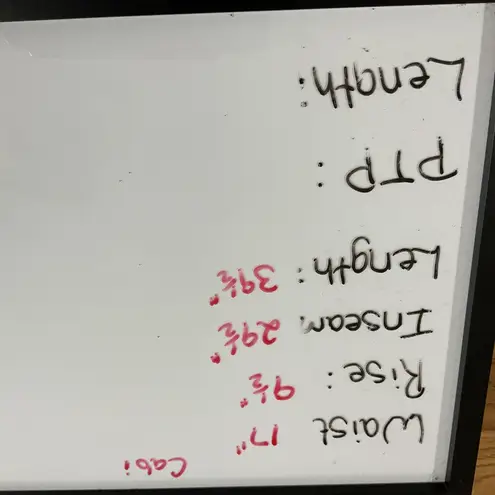 Cabi
Waist 17"
Rise: 9 1/2"
Inseam 29 1/2"
Length: 39 1/2"
PTP:
Length: